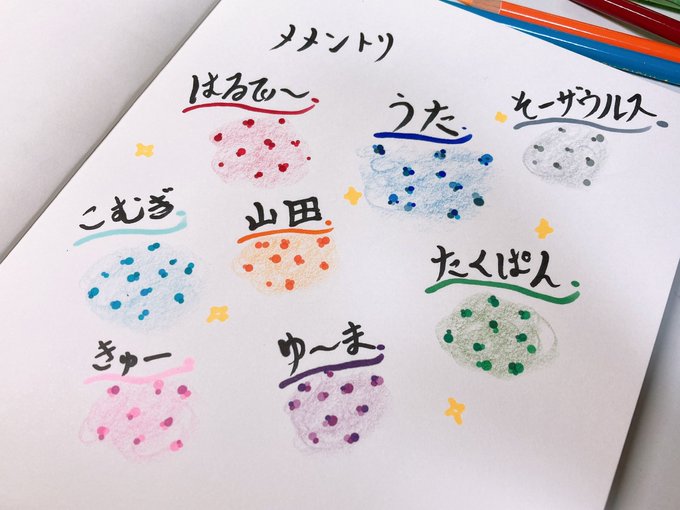 メメントリ
はるてぃ〜
うた
そーザウルス
こむぎ
山田
たくぱん
きゅー
ゆ〜ま